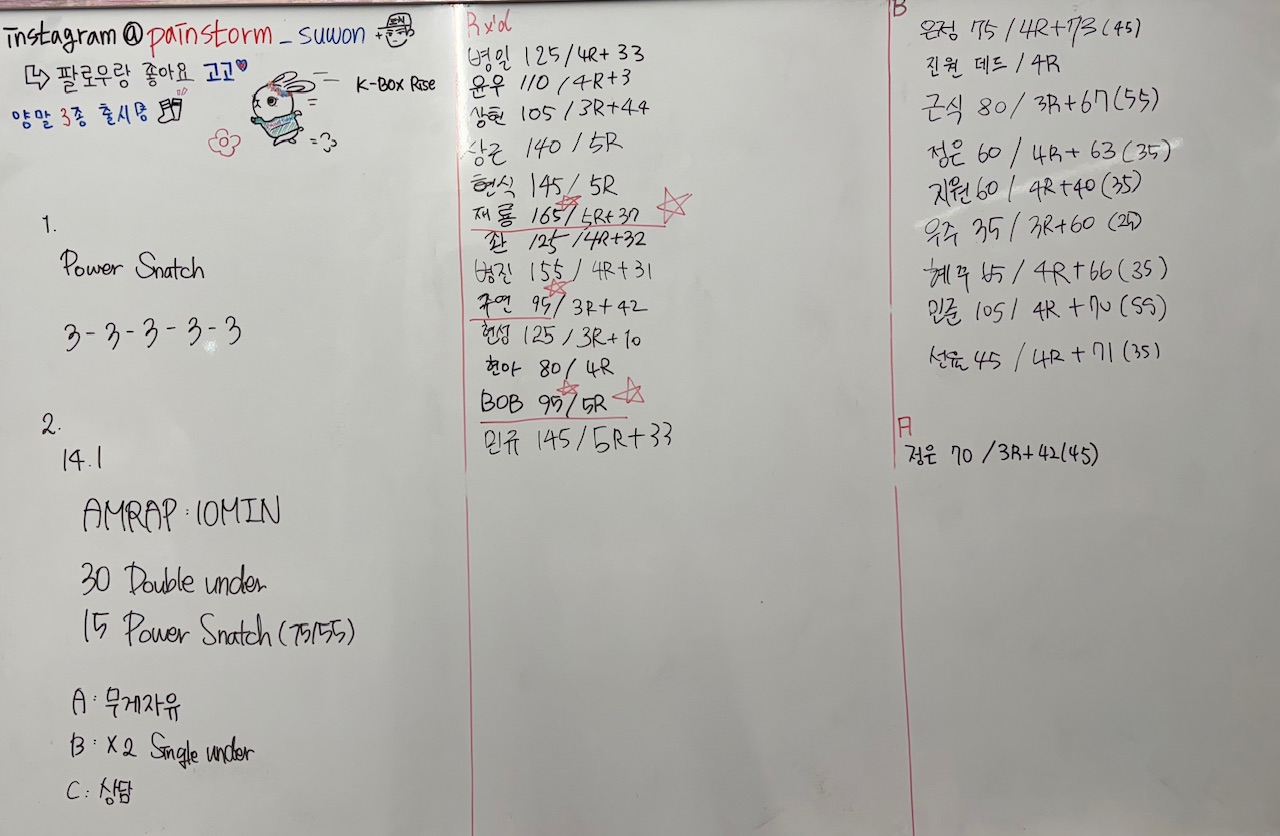 instagram@painstorm_suwon
↳ 팔로우랑 좋아요 고고♥
양말 3종 출시중
K-BOX Rise
1.
Power Snatch
3-3-3-3-3
2.
14.1
AMRAP:10MIN
30 Double under
15 Power Snatch (75/55)
A: 무게자유
B: X2 Single under
C: 상담
Rx'd
병일 125/4R+33
윤우 110/4R+3
상현 105/3R+44
상근 140/5R
현식 145/5R
재룡 165/5R+37
좐 125/4R+32
병진 155/4R+31
주연 95/3R+42
현성 125/3R+10
현아 80/4R
BOB 95/5R
민규 145/5R+33
B
은정 75/4R+73(45)
진원 데드/4R
근식 80/3R+67(55)
정은 60/4R+63(35)
지원 60/4R+40(35)
우주 35/3R+60
혜무 65/4R+66(35)
민준 105/4R+70(55)
45/4R+71(35)
A
정은 70/3R+42(45)